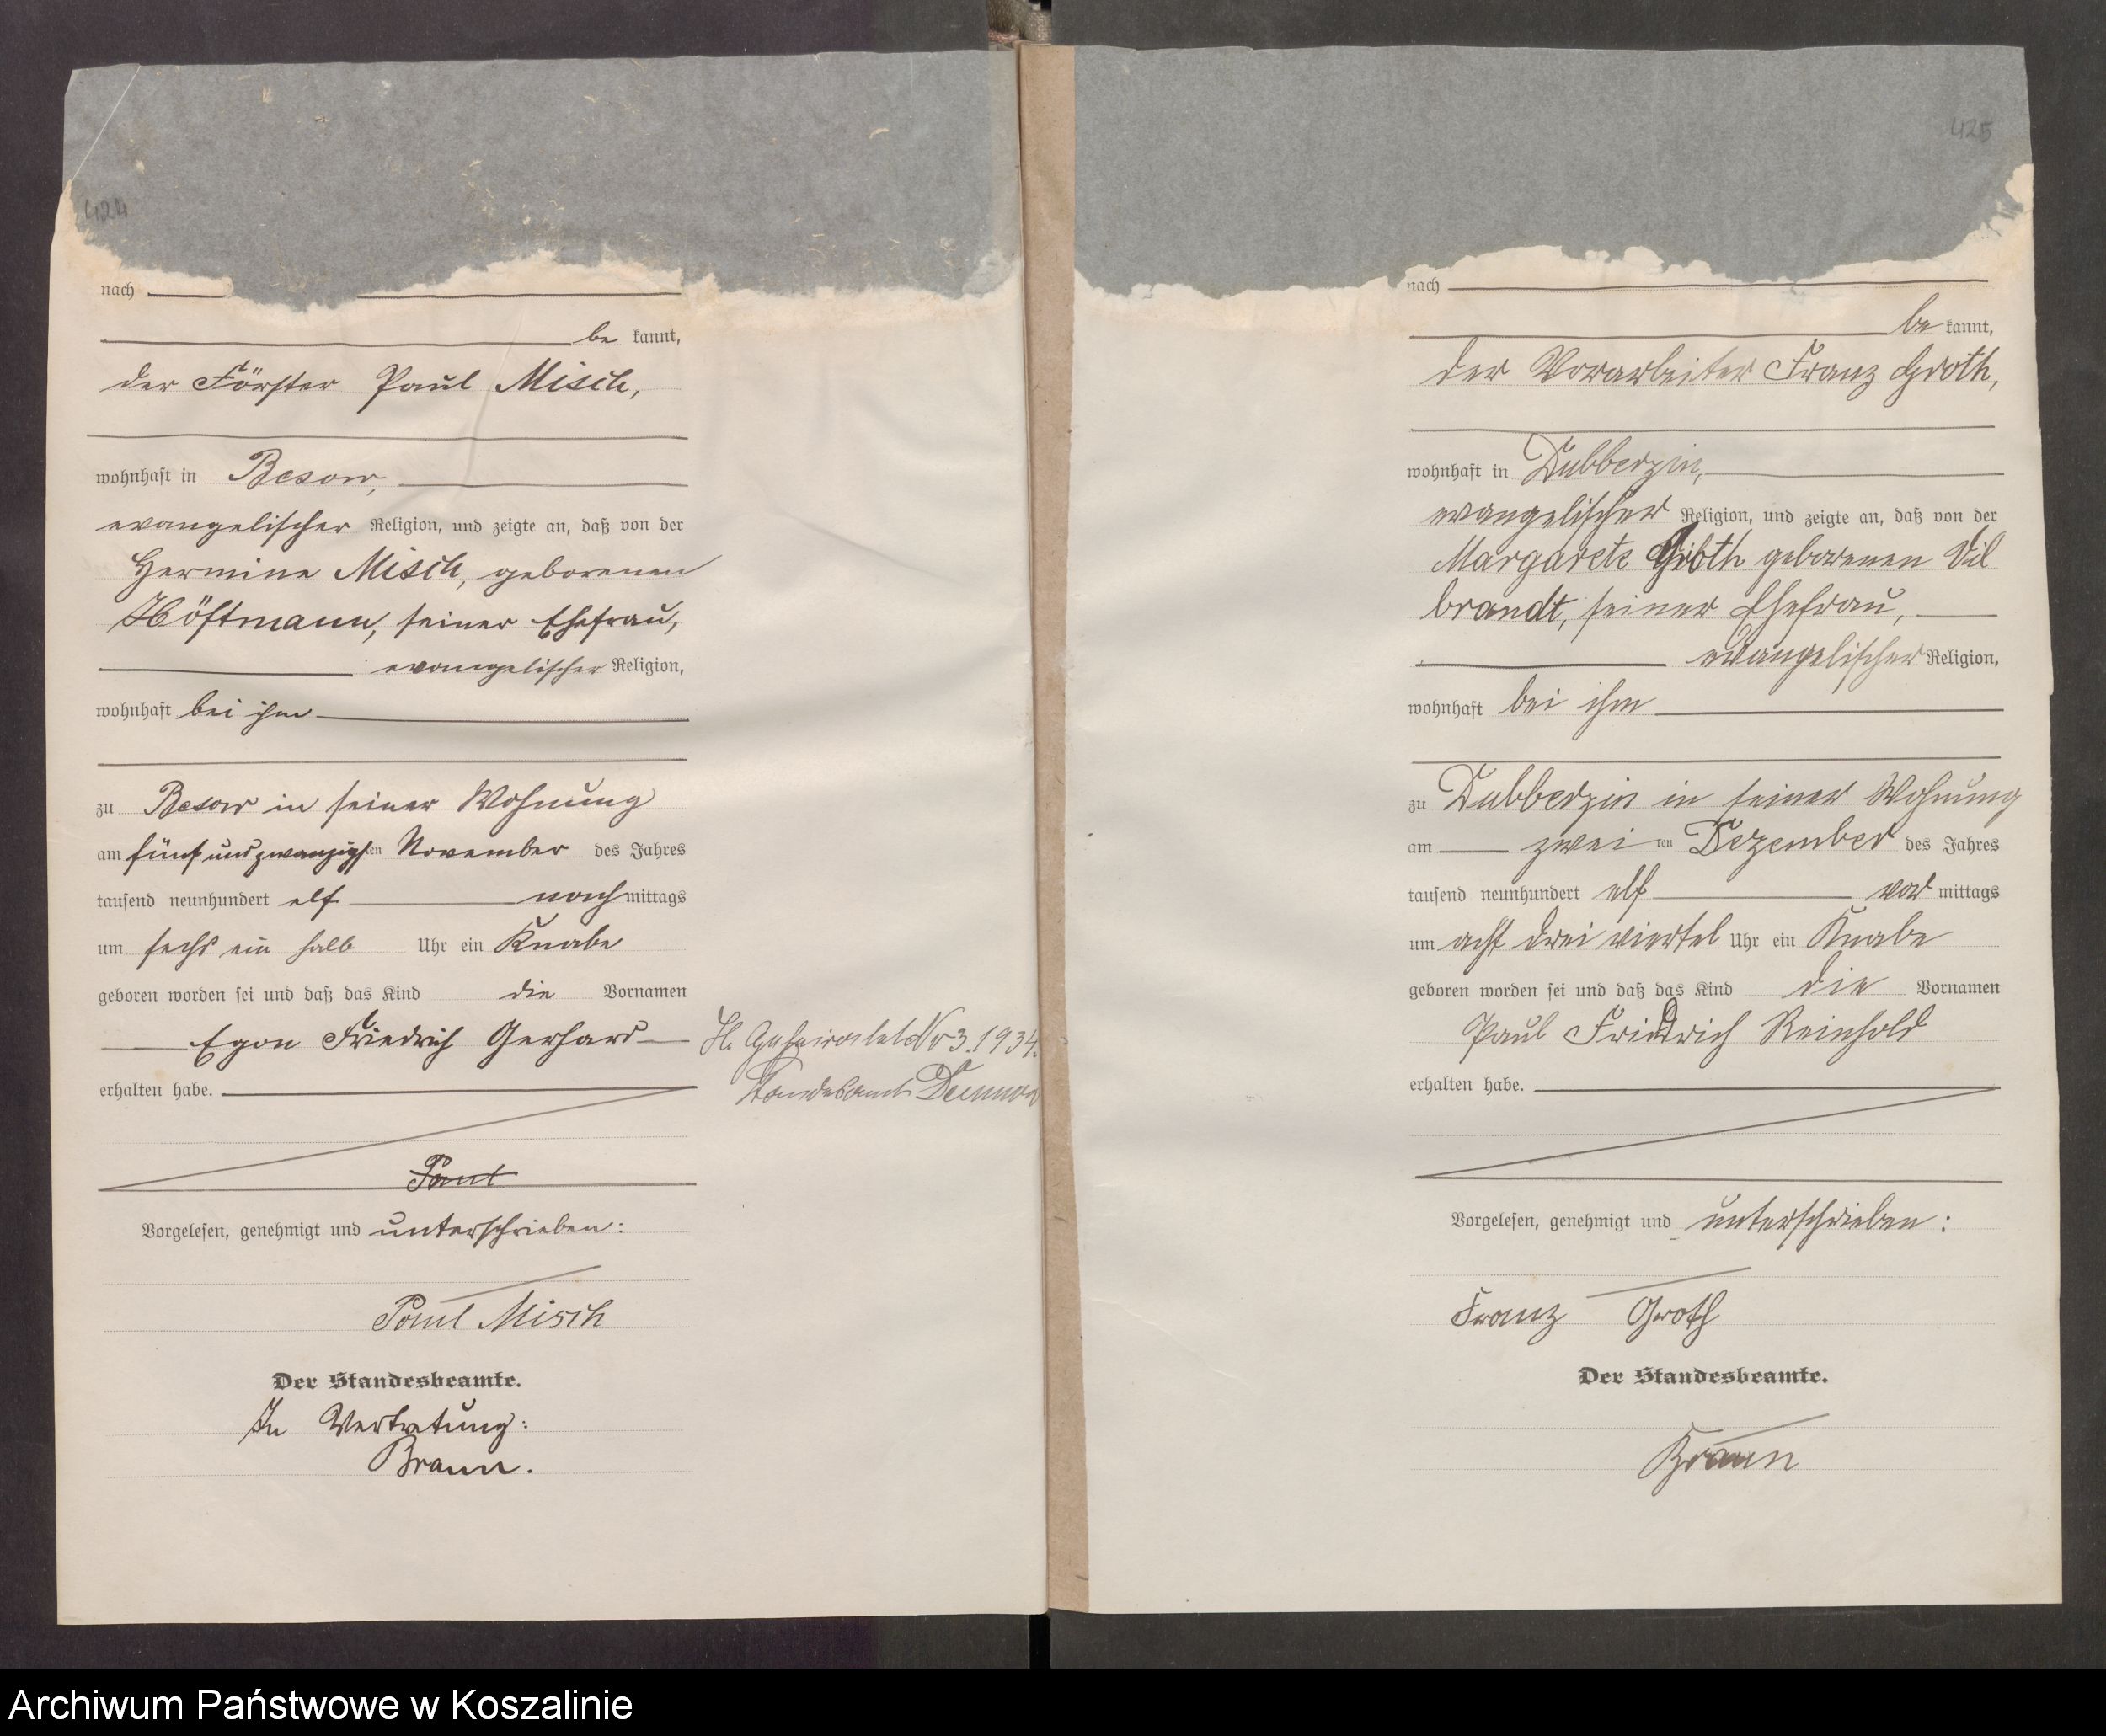 424
nach
be kannt,
der Förster Paul Misch,
wohnhaft in Besow,
evangelischer Religion, und zeigte an, daß von der
Hermine Misch, geborenen
Höftmann, seiner Ehefrau,
evangelischer Religion,
wohnhaft bei ihm
zu Besow in seiner Wohnung
am fünf und zwanzigsten November des Jahres
tausend neunhundert elf nachmittags
um sechs ein halb Uhr ein Knabe
geboren worden sei und daß das Kind die Vornamen
Egon Friedrich Gerhard
erhalten habe.
Paul
Vorgelesen, genehmigt und unterschrieben:
Paul Misch
Der Standesbeamte.
In Vertretung:
Braun.
Nr 3. 1934.
Standesamt
425
nach
be kannt,
der Vorarbeiter Franz Groth,
wohnhaft in Dubberzin,
evangelischer Religion, und zeigte an, daß von der
Margarete Groth geborenen Dil
brandt, seiner Ehefrau,
evangelischer Religion,
wohnhaft bei ihm
zu Dubberzin in seiner Wohnung
am zwei ten Dezember des Jahres
tausend neunhundert elf vor mittags
um acht drei viertel Uhr ein Knabe
geboren worden sei und daß das Kind die Vornamen
Paul Friedrich Reinhold
erhalten habe.
Vorgelesen, genehmigt und unterschrieben:
Franz Groth
Der Standesbeamte.
Archiwum Państwowe w Koszalinie